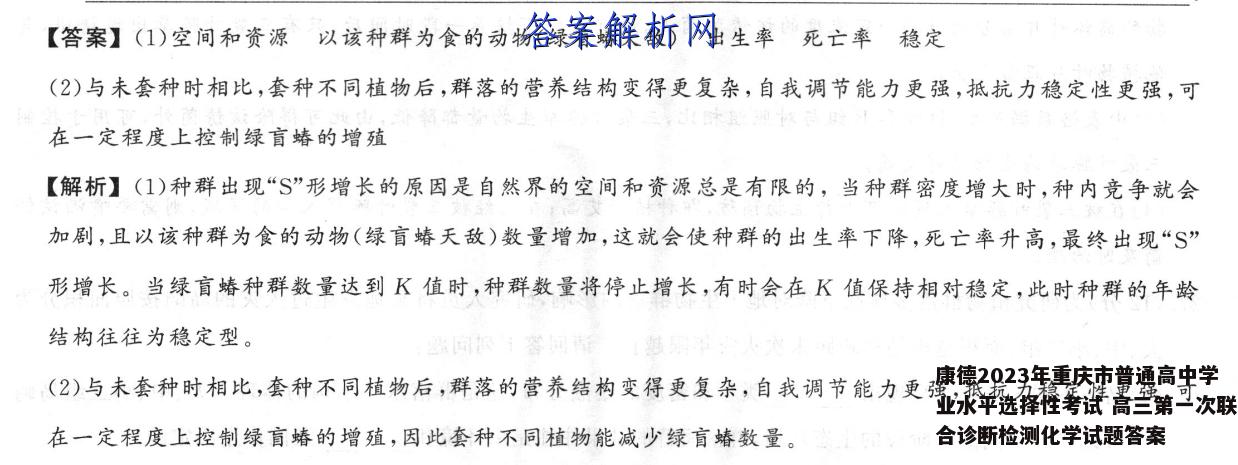 【答案】(1)空间和资源 以该种群为食的动物(绿盲蝽天敌) 出生率 死亡率 稳定
答案解析网
(2)与未套种时相比,套种不同植物后,群落的营养结构变得更复杂,自我调节能力更强,抵抗力稳定性更强,可
在一定程度上控制绿盲蝽的增殖
【解析】(1)种群出现“S”形增长的原因是自然界的空间和资源总是有限的,当种群密度增大时,种内竞争就会
加剧,且以该种群为食的动物(绿盲蝽天敌)数量增加,这就会使种群的出生率下降,死亡率升高,最终出现“S”
形增长。当绿盲蝽种群数量达到 K 值时,种群数量将停止增长,有时会在 K 值保持相对稳定,此时种群的年龄
结构往往为稳定型。
(2)与未套种时相比,套种不同植物后,群落的营养结构变得更复杂,自我调节能力更强,抵抗力稳定性更强,可
在一定程度上控制绿盲蝽的增殖,因此套种不同植物能减少绿盲蝽数量。
康德2023年重庆市普通高中学
业水平选择性考试 高三第一次联
合诊断检测化学试题答案